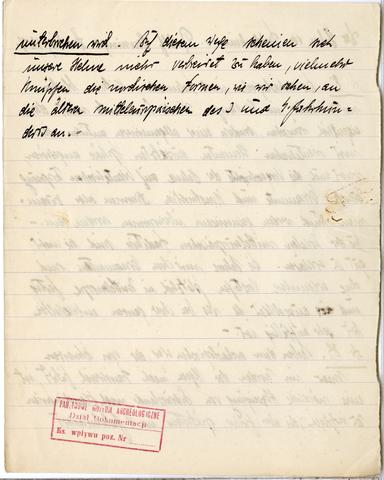 unterbrochen wird. Auf diesem Wege scheinen sich
unsere Helme nicht verbreitet zu haben, vielmehr
knüpfen die nordischen Formen, wie wir sehen, an
die ältern mitteleuropäischen des 3 und 4 Jahrhun-
derts an.
PAŃSTWOWE MUZEUM ARCHEOLOGICZNE
Dział Dokumentacji
Ks. wpływu poz. Nr